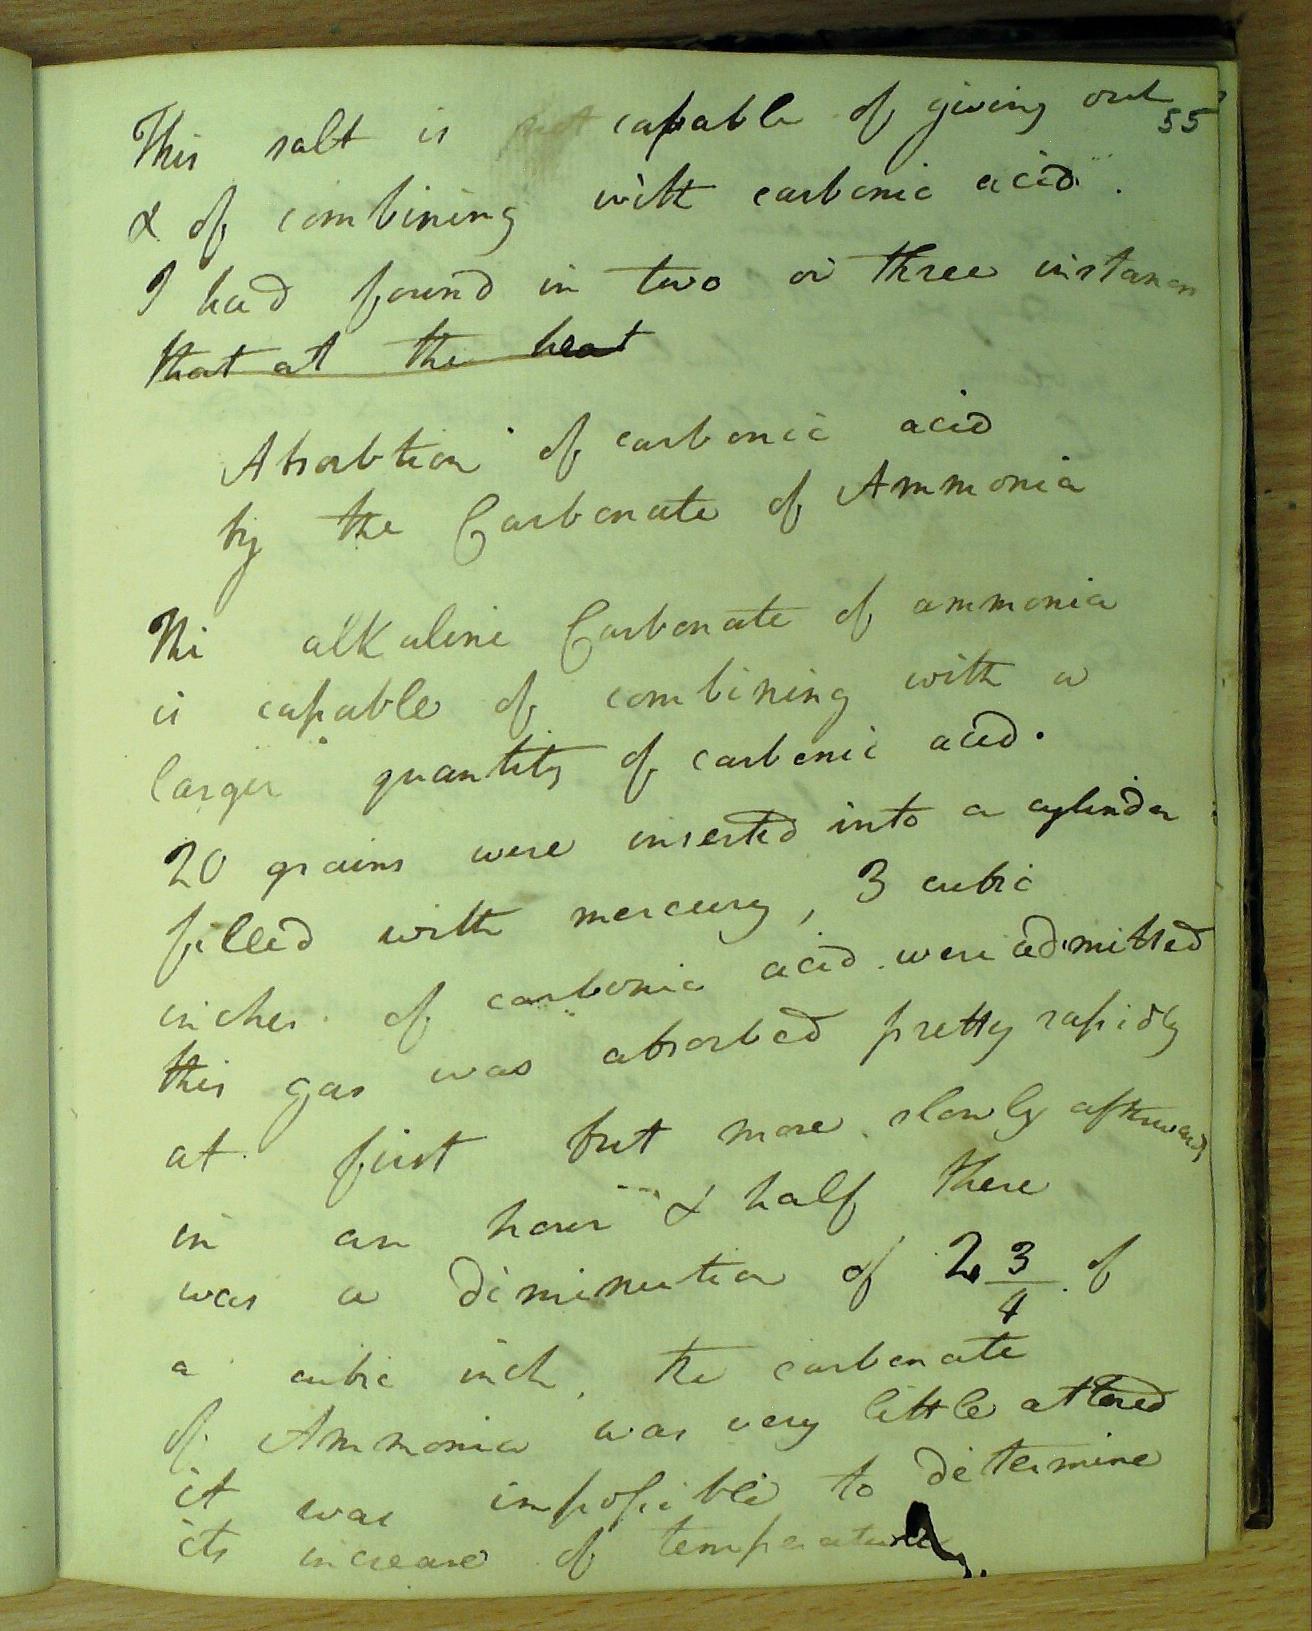 This salt is not capable of giving out
55
& of combining with carbonic acid.
I had found in two or three instances
that at the heat
Absorbtion of carbonic acid
by the Carbonate of Ammonia
The alkaline Carbonate of ammonia
is capable of combining with a
larger quantity of carbonic acid.
20 grains were inserted into a cylinder
filled with mercury, 3 cubic
inches of carbonic acid were admitted
this gas was absorbed pretty rapidly
at first but more slowly afterwards
in an hour & half there
was a diminution of 2 3/4 of
a cubic inch, the carbonate
of Ammonia was very little altered
it was impossible to determine
its increase of temperature.